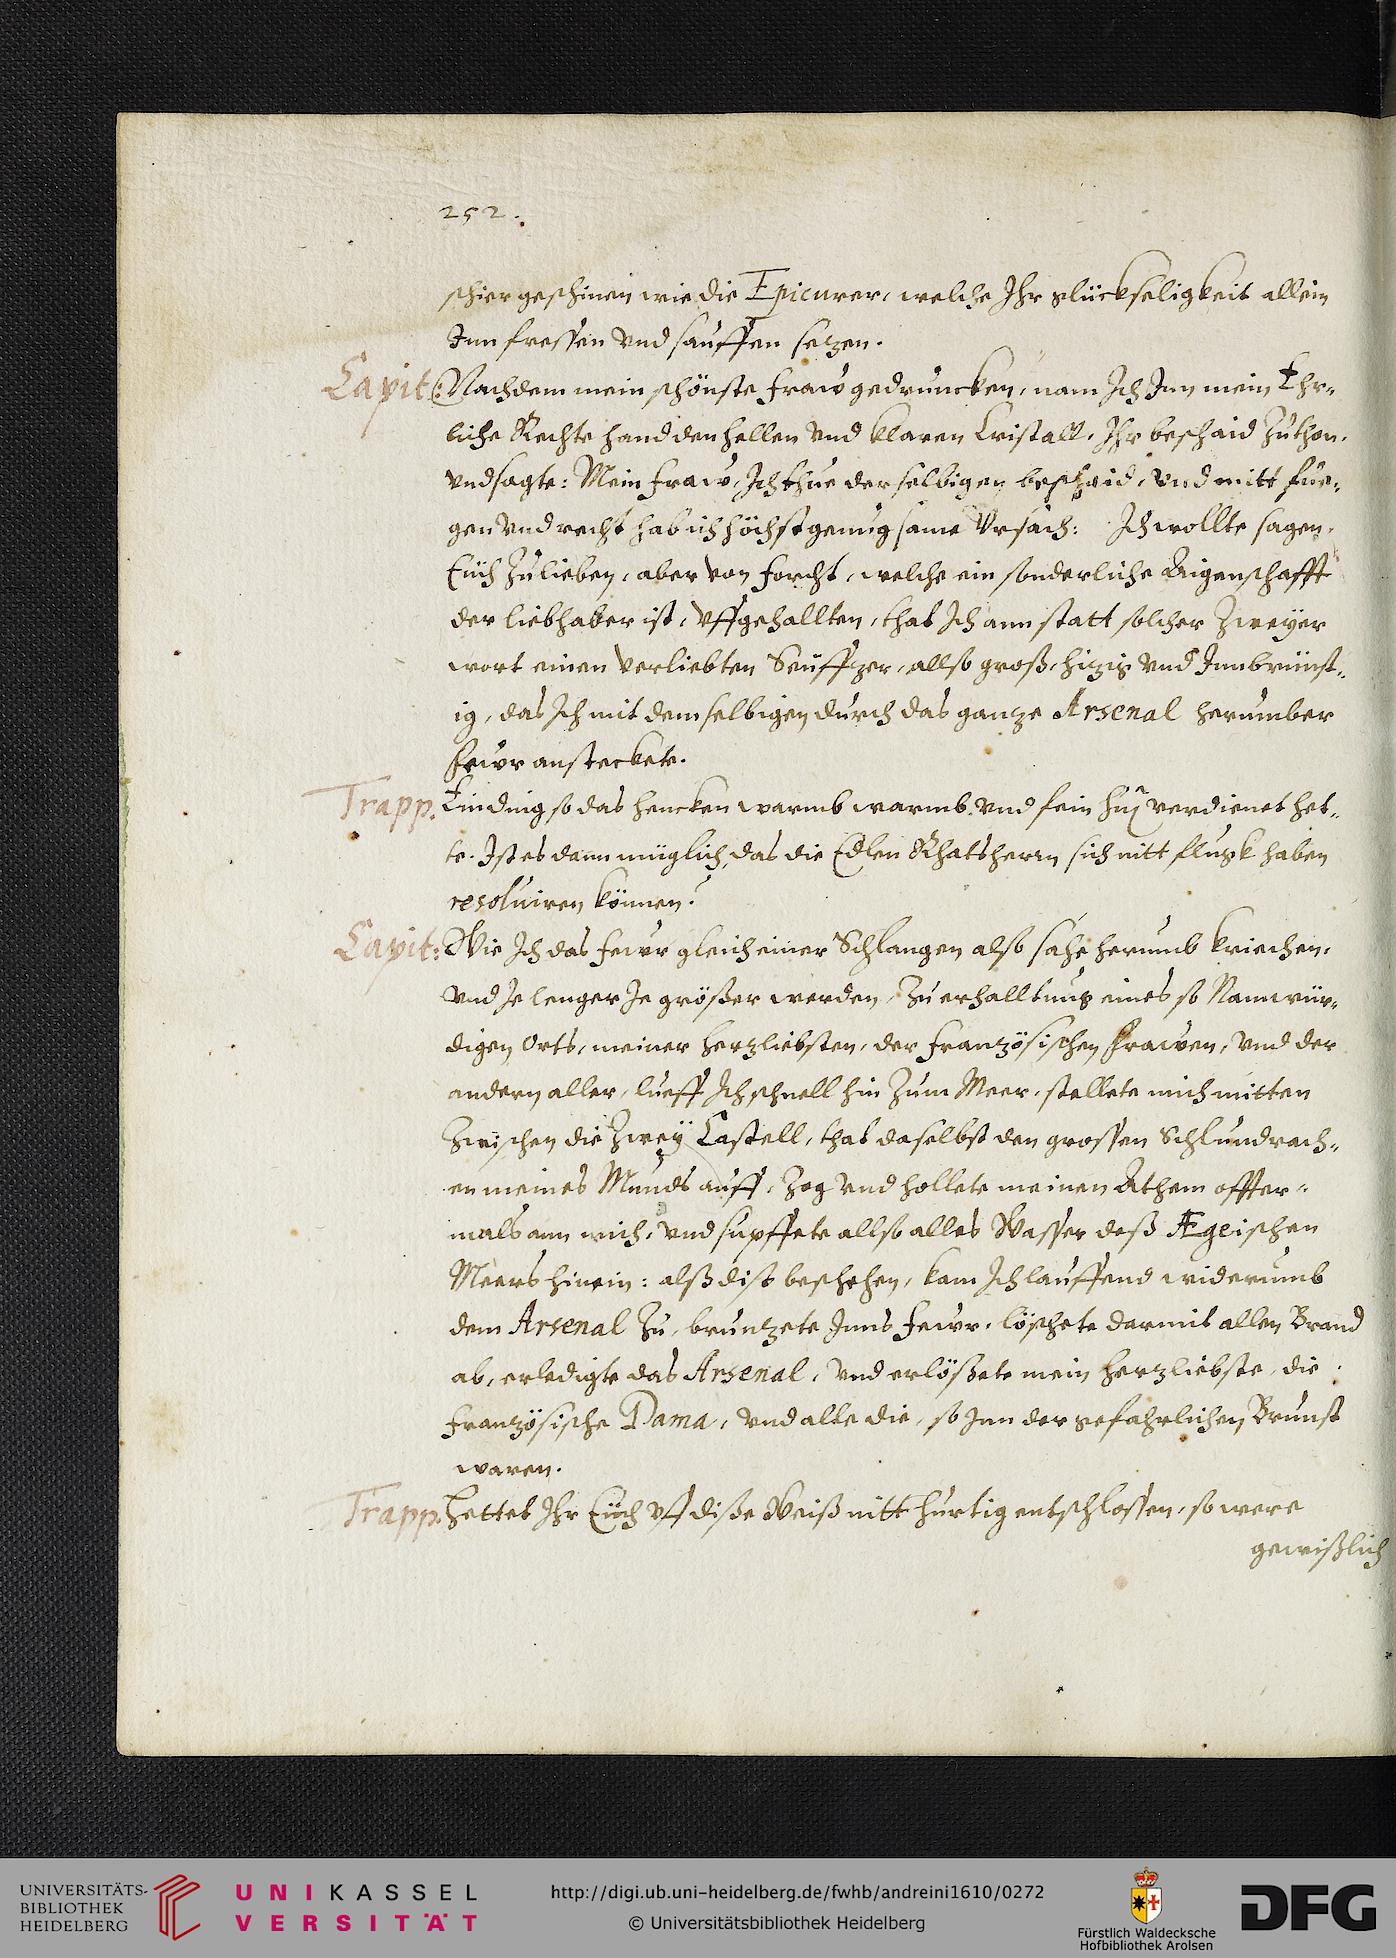 252.
schier geschinen wie die Epicurer, welche Ihr glückseligkeit allein
Inn fressen vnd sauffen setzen.
Capit: Nachdem mein schönste fraw gedruncken, nam Ich Inn mein Ehr-
liche Rechte hand den hellen vnd klaren Cristall, Ihr beschaid zuthon,
vnd sagte: Mein fraw, Ich thue derselbigen beschaid, vnd mitt fue-
gen vnd recht hab ich höchstgenugsame Vrsach: Ich wollte sagen,
Euch zulieben, aber von forcht, welche ein sonderliche Aigenschafft
der liebhaber ist, vffgehallten, that Ich ann statt solcher zweyer
wort einen verliebten Seuffzer, allso groß, hizig vnd Innbrünst-
ig, das Ich mit demselbigen durch das gantze Arsenal herumber
fewr ansteckete.
Trapp. Ein ding so das hencken warmb warmb vnd fein verdienet het-
te. Ist es dann müglich, das die Edlen Rhatsherrn sich nitt flugk haben
resoluiren können?
Capit: Wie Ich das fewr gleich einer Schlangen also sahe herumb kriechen,
vnd Je lenger Je größer werden, zu erhalltung eines so Namwür-
digen Orts, meiner hertzliebsten, der französischen frawen, vnd der
andern aller, lueff Ich schnell hin zum Meer, stellete mich mitten
zwischen die zwey Castell, that daselbst den grossen Schlundrach-
en meines Munds auff, zog vnd hollete meinen Athem offter-
mals ann mich, vnd supffete allso alles Wasser deß Ægeischen
Meers hinein: alß diß beschehen, kam Ich lauffend widerumb
dem Arsenal zu, bruntzete Inns fewr, löschete darmit allen Brand
ab, erledigte das Arsenal, vnd erlößete mein hertzliebste, die
französische Dama, vnd alle die, so Inn der gefahrlichen Brunst
waren.
Trapp. Hettet Ihr Euch vff diße Weiß nitt hurtig entschlossen, so were
gewißlich
UNIVERSITÄTS-
BIBLIOTHEK
HEIDELBERG
UNIKASSEL
VERSITÄT
http://digi.ub.uni-heidelberg.de/fwhb/andreini1610/0272
© Universitätsbibliothek Heidelberg
Fürstlich Waldecksche
Hofbibliothek Arolsen
DFG